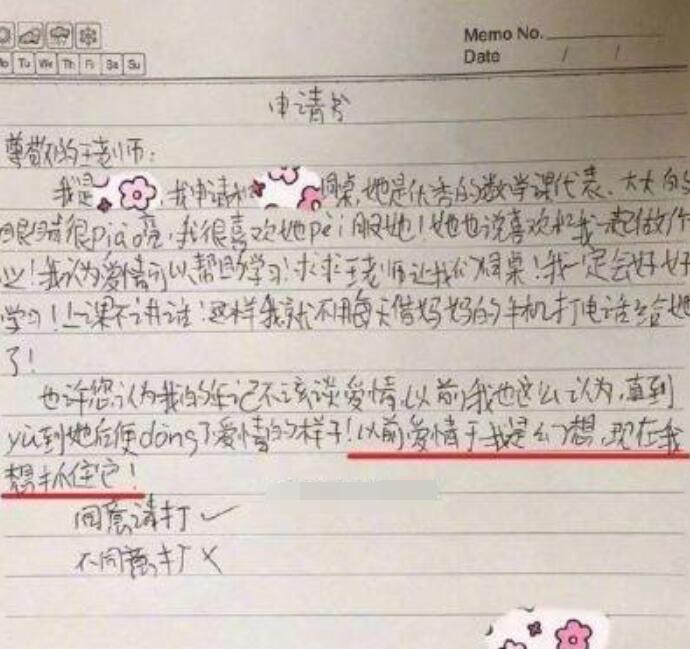 Memo No.
Date / /
Mo Tu We Th Fr Sa Su
申请书
尊敬的王老师:
我是 ,我申请和 同桌,她是优秀的数学课代表,大大的
眼睛很piao亮,我很喜欢她pei服她!她也说喜欢和我一起做作
业!我认为爱情可以帮助学习!求求王老师让我们同桌!我一定会好好
学习!上课不讲话!这样我就不用每天借妈妈的手机打电话给她
了!
也许您认为我的年记不该谈爱情,以前我也这么认为,直到
yù到她后便dǒng了爱情的样子!以前爱情于我是幻想,现在我
想抓住它!
同意请打✓
不同意打×